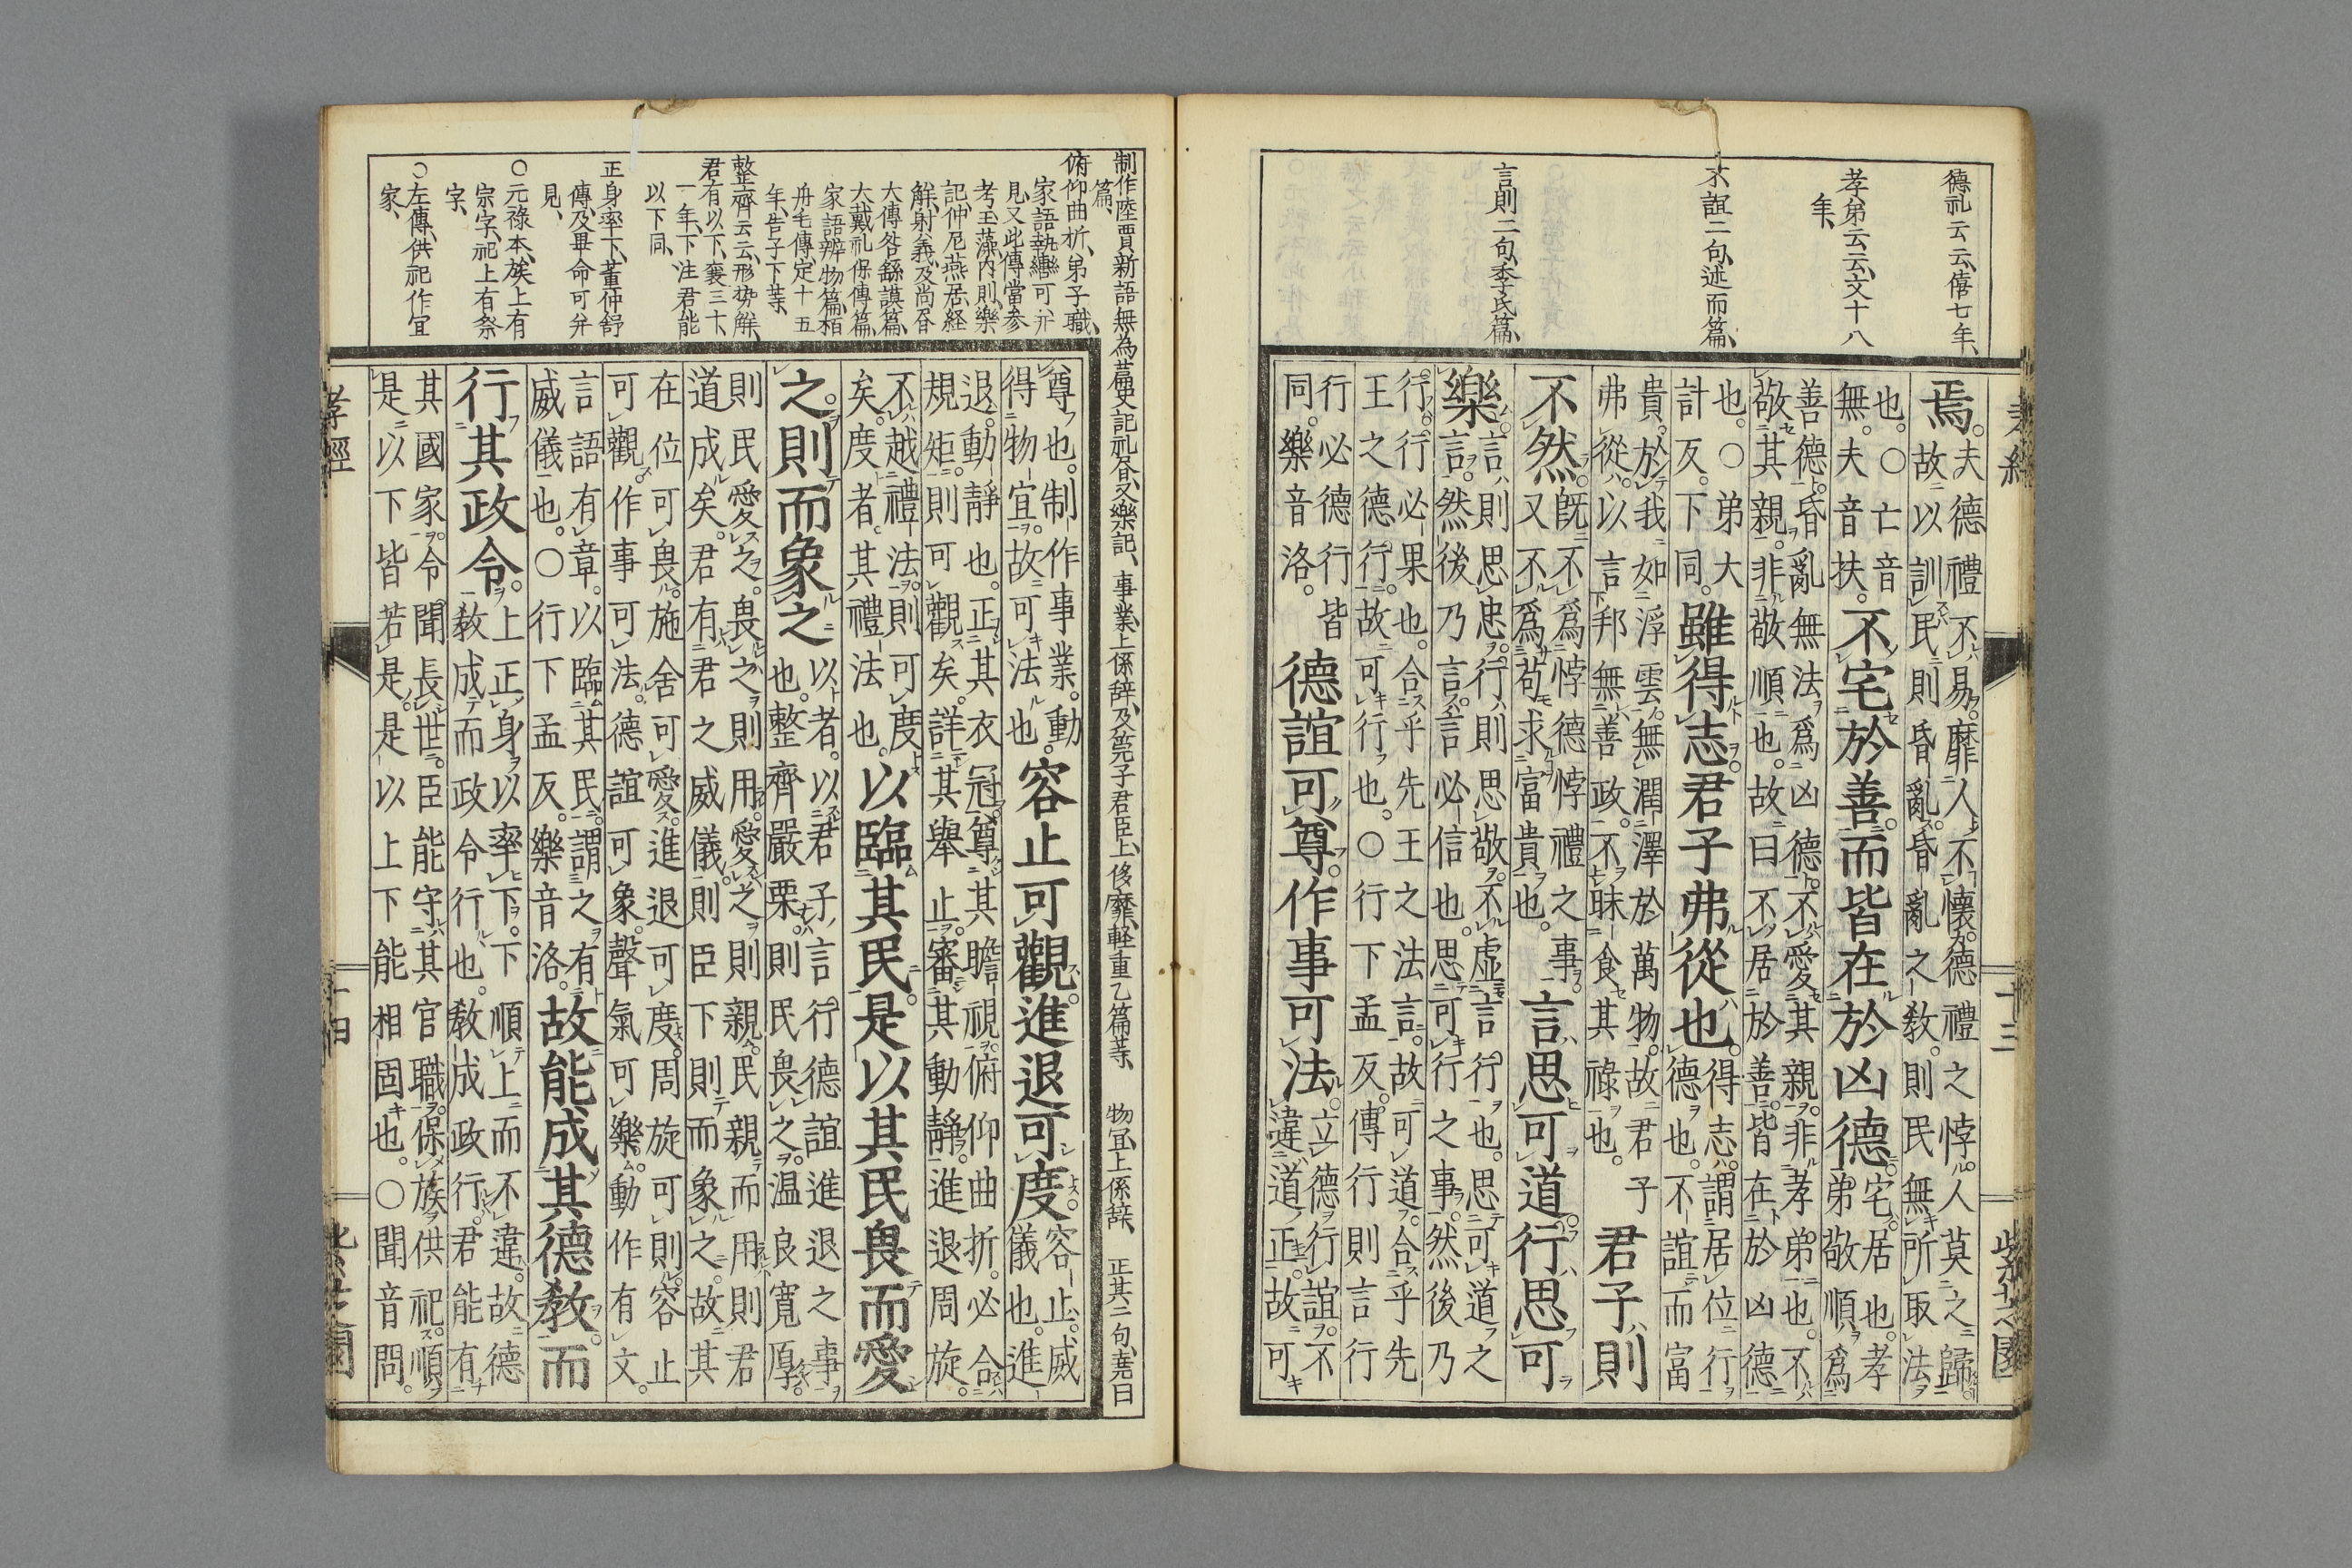 孝經
十三
紫芝園
德礼云云、僖七年、
孝弟云云、文十八
年、
不誼二句、述而篇、
言則二句、季氏篇、
焉。
夫德禮不易。靡人不懷。德禮之悖。人莫之歸。
故以訓民。則昏亂。昏亂之教。則民無所取法
也。○亡音
無。夫音扶。
不宅於善。而皆在於凶德。
宅居也。孝
弟敬順爲
善德。昏亂無法爲凶德。不愛其親。非孝弟也。不
敬其親。非敬順也。故曰不居於善。皆在於凶德
也。○弟大
計反。下同。
雖得志。君子弗從也。
得志。謂居位行
德也。不誼而富
貴。於我如浮雲。無潤澤於萬物。故君子
弗從。以言邦無善政。不昧食其祿也。
君子則
不然。
既不爲悖德悖禮之事。
又不爲苟求富貴也。
言思可道。行思可
樂。
言則思忠。行則思敬。不虛言行也。思可道之
言。然後乃言。言必信也。思可行之事。然後乃
行。行必果也。合乎先王之法言。故可道。合乎先
王之德行。故可行也。○行下孟反。傳行則言行
行必德行皆
同。樂音洛。
德誼可尊。作事可法。
立德行誼。不
違道正。故可
制作陸賈新語無為篇史記礼書、又樂記、事業、上係辞、及第子君臣上、侈靡、軽重乙篇等、物宜、上係辞、正其二句、堯曰
篇、
俯仰曲折、弟子職、
家語執轡可并
見、又此傳當参
考玉藻、内則、樂
記、仲尼燕居、経
解、射義、及尚書
大傳咎繇謨篇、
大戴礼保傳篇、
家語辨物篇、栢
舟毛傳、定十五
年、告子下等、
整齊云云、形勢解、
君有以下、襄三十
一年、下注君能
以下同、
正身率下、董仲舒
傳、及畢命可并
見、
○元祿本、族上有
宗字、祀上有祭
字、
○左傳、供祀作宜
家、
尊也。制作事業。動
得物宜。故可法也。
容止可觀。進退可度。
容止。威
儀也。進
退。動靜也。正其衣冠。尊其瞻視。俯仰曲折。必合
規矩。則可觀矣。詳其舉止。審其動靜。進退周旋。
不越禮法。則可度
矣。度者。其禮法也。
以臨其民。是以其民畏而愛
之。則而象之
以者。以君子言行德誼進退之事
也。整齊嚴栗。則民畏之。温良寬厚。
則民愛之。畏之則用。愛之則親。民親而用。則君
道成矣。君有君之威儀。則臣下則而象之。故其
在位可畏。施舍可愛。進退可度。周旋可則。容止
可觀。作事可法。德誼可象。聲氣可樂。動作有文。
言語有章。以臨其民。謂之有
威儀也。○行下孟反。樂音洛。
故能成其德教。而
行其政令。
上正身以率下。下順上而不違。故德
教成而政令行也。教成政行。君能有
其國家。令聞長世。臣能守其官職。保族供祀。順
是以下皆若是。是以上下能相固也。○聞音問。
孝經
十四
紫芝園